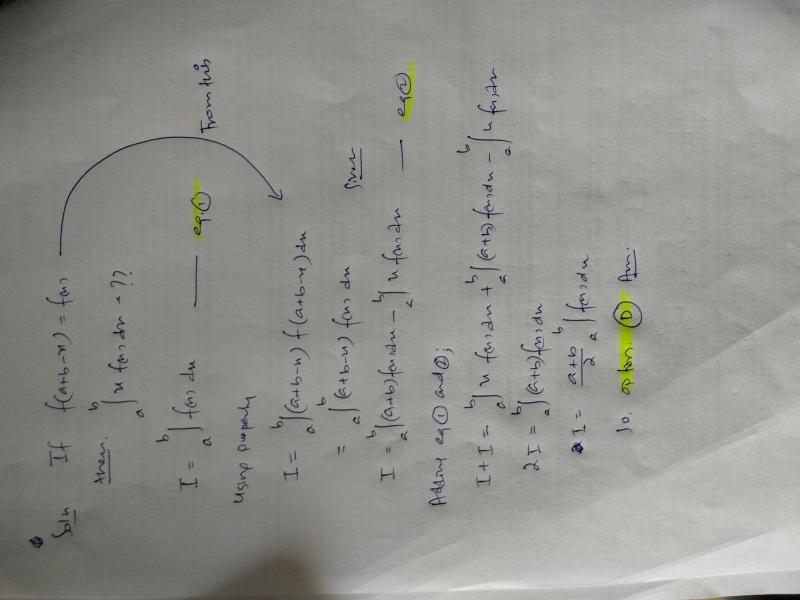 Soln If f(a+b-x) = f(x)
then. ∫_a^b x f(x) dx = ??
I = ∫_a^b f(x) dx — eq.①
From this
Using property
I = ∫_a^b (a+b-x) f(a+b-x) dx
= ∫_a^b (a+b-x) f(x) dx given
I = ∫_a^b (a+b) f(x) dx - ∫_a^b x f(x) dx — eq②
Adding eq ① and ②;
I + I = ∫_a^b x f(x) dx + ∫_a^b (a+b) f(x) dx - ∫_a^b x f(x) dx
2I = ∫_a^b (a+b) f(x) dx
I = a+b/2 ∫_a^b f(x) dx
So. option. Ⓓ Ans.